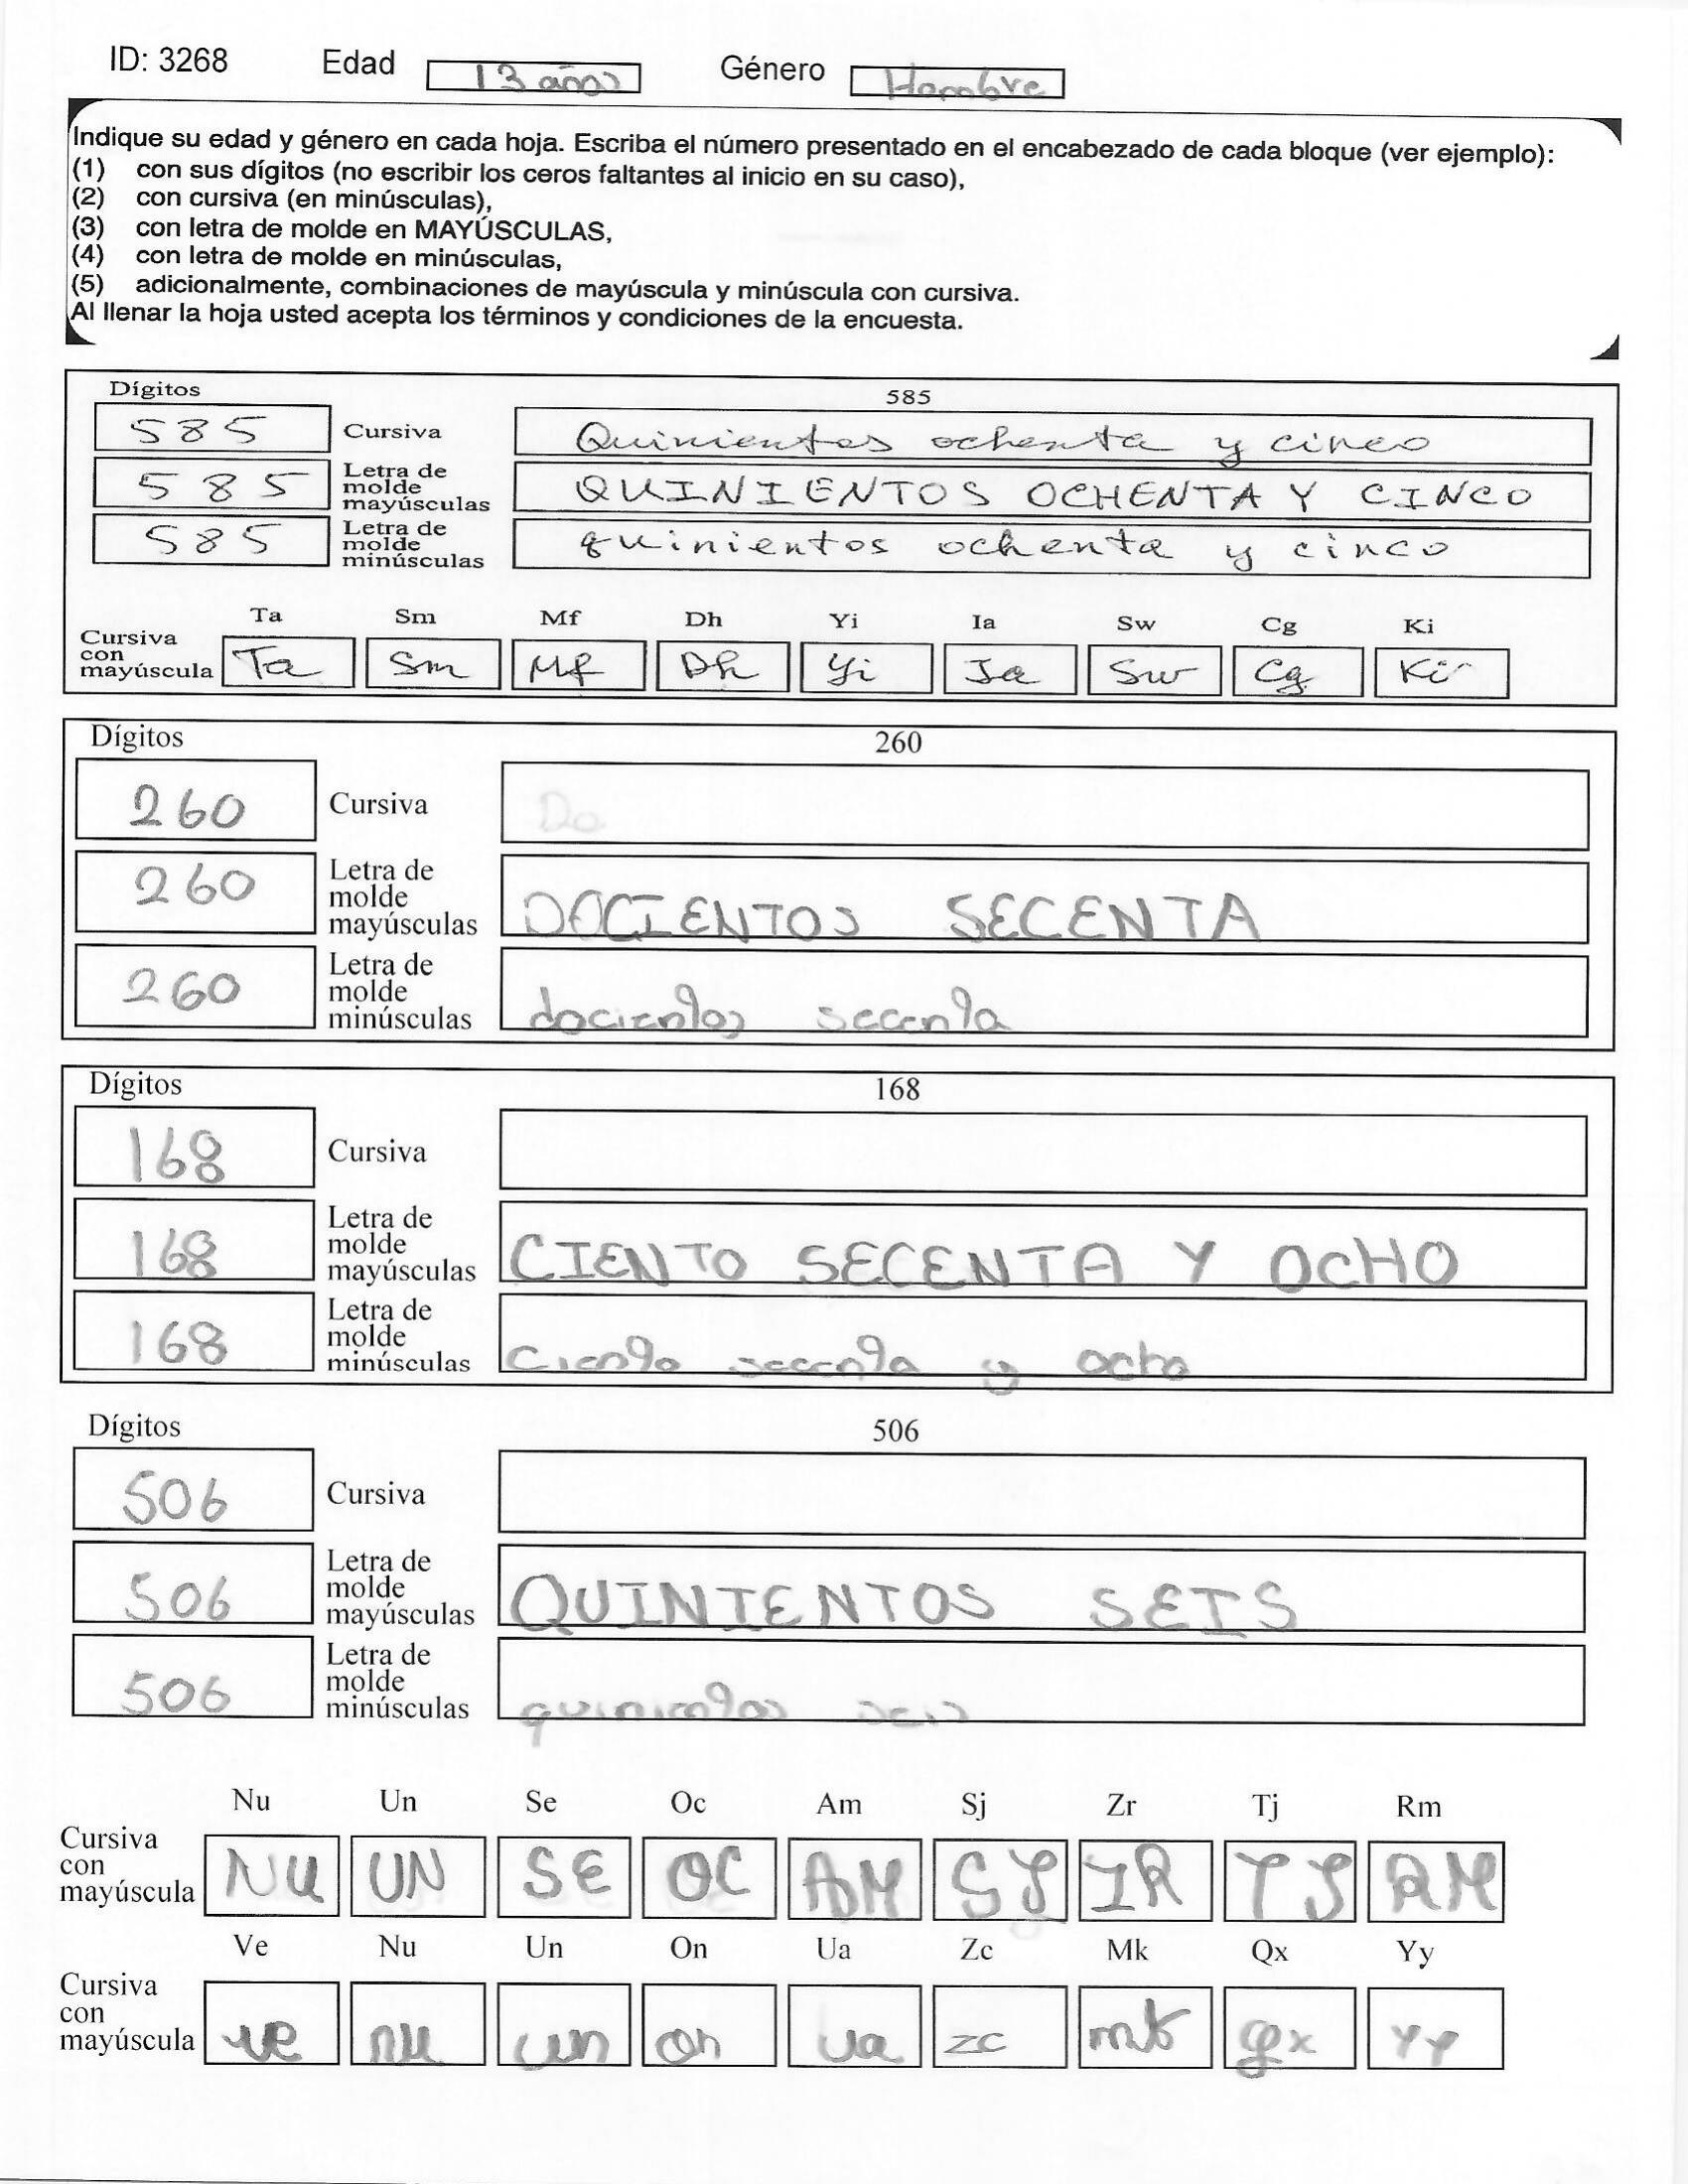 ID: 3268 Edad 13 años Género Hombre
Indique su edad y género en cada hoja. Escriba el número presentado en el encabezado de cada bloque (ver ejemplo):
(1) con sus dígitos (no escribir los ceros faltantes al inicio en su caso),
(2) con cursiva (en minúsculas),
(3) con letra de molde en MAYÚSCULAS,
(4) con letra de molde en minúsculas,
(5) adicionalmente, combinaciones de mayúscula y minúscula con cursiva.
Al llenar la hoja usted acepta los términos y condiciones de la encuesta.
Dígitos 585
585 Cursiva Quinientos ochenta y cinco
585 Letra de molde mayúsculas QUINIENTOS OCHENTA Y CINCO
585 Letra de molde minúsculas quinientos ochenta y cinco
Ta Sm Mf Dh Yi Ia Sw Cg Ki
Cursiva con mayúscula Ta Sm Mf Dh Yi Ia Sw Cg Ki
Dígitos 260
260 Cursiva Do
260 Letra de molde mayúsculas DOCIENTOS SECENTA
260 Letra de molde minúsculas docientos secenta
Dígitos 168
168 Cursiva
168 Letra de molde mayúsculas CIENTO SECENTA Y OCHO
168 Letra de molde minúsculas ciento secenta y ocho
Dígitos 506
506 Cursiva
506 Letra de molde mayúsculas QUINIENTOS SEIS
506 Letra de molde minúsculas quinientos seis
Nu Un Se Oc Am Sj Zr Tj Rm
Cursiva con mayúscula NU UN SE OC AM SJ IR TJ RM
Ve Nu Un On Ua Zc Mk Qx Yy
Cursiva con mayúscula ve nu un on ua zc mk qx yy